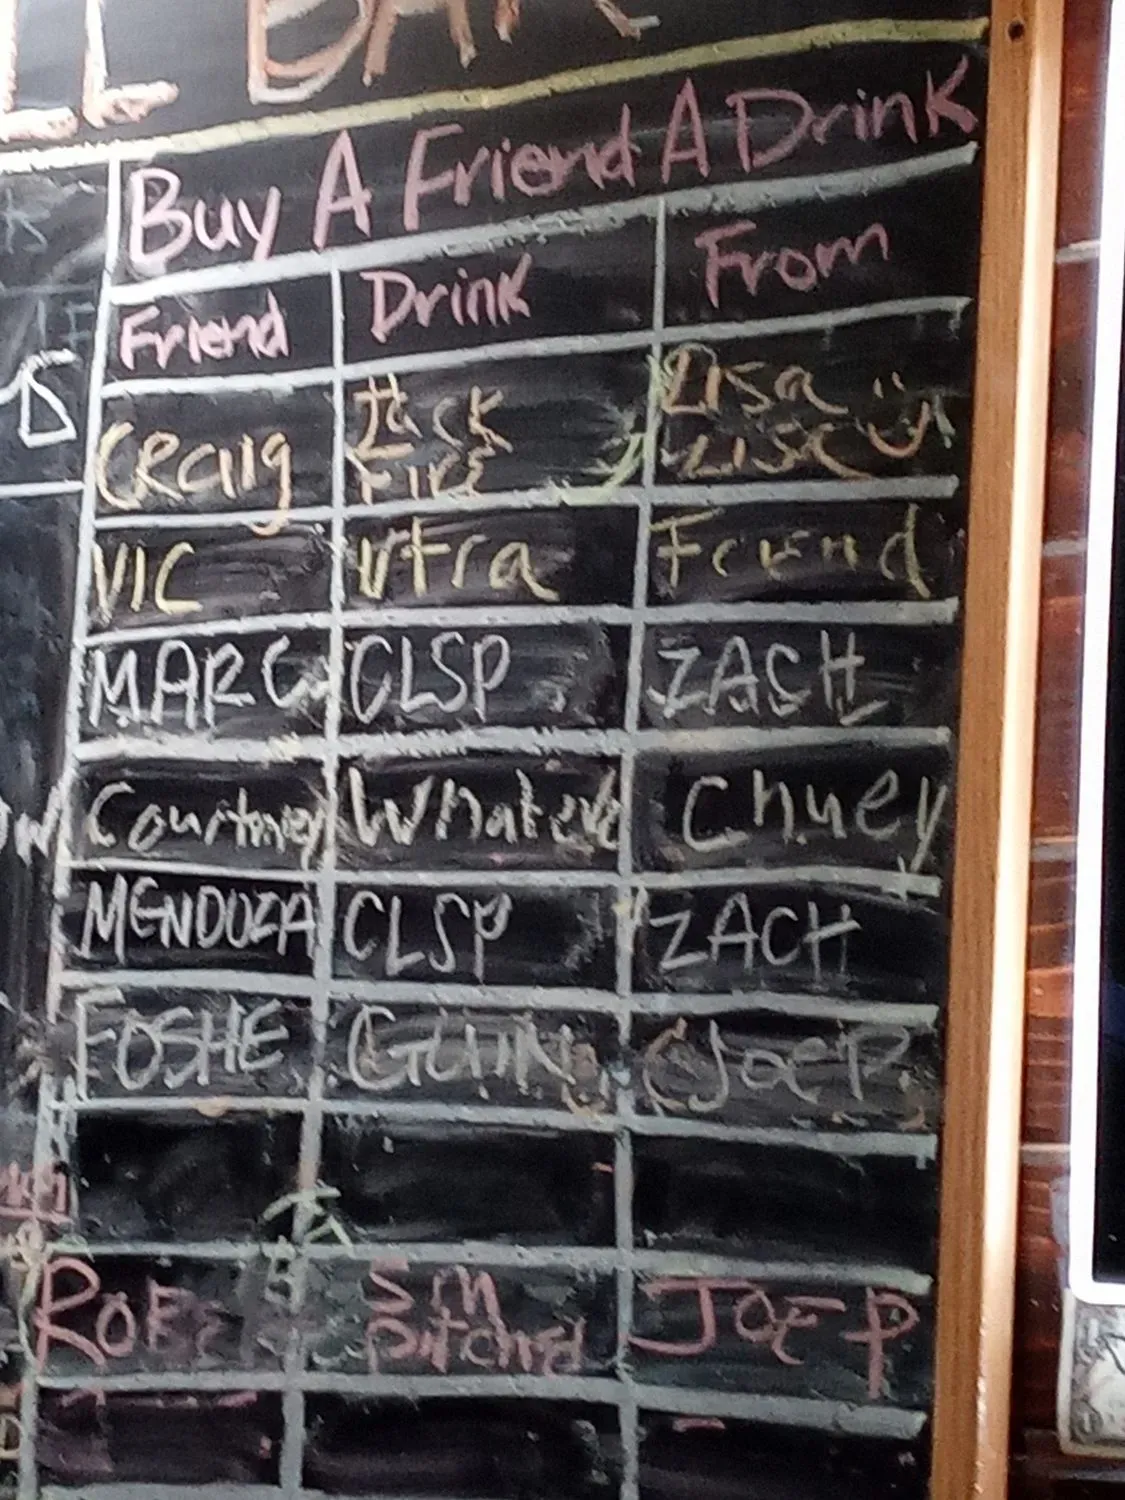 LL BAR
Buy A Friend A Drink
Friend Drink From
CRaig Jack Fire Lisa Lisa
VIC Ultra Friend
MARC CLSP ZACH
Courtney Whatever Chuey
MENDOZA CLSP ZACH
FOSHE JOEP
ROB Sm Pitcher JOE P